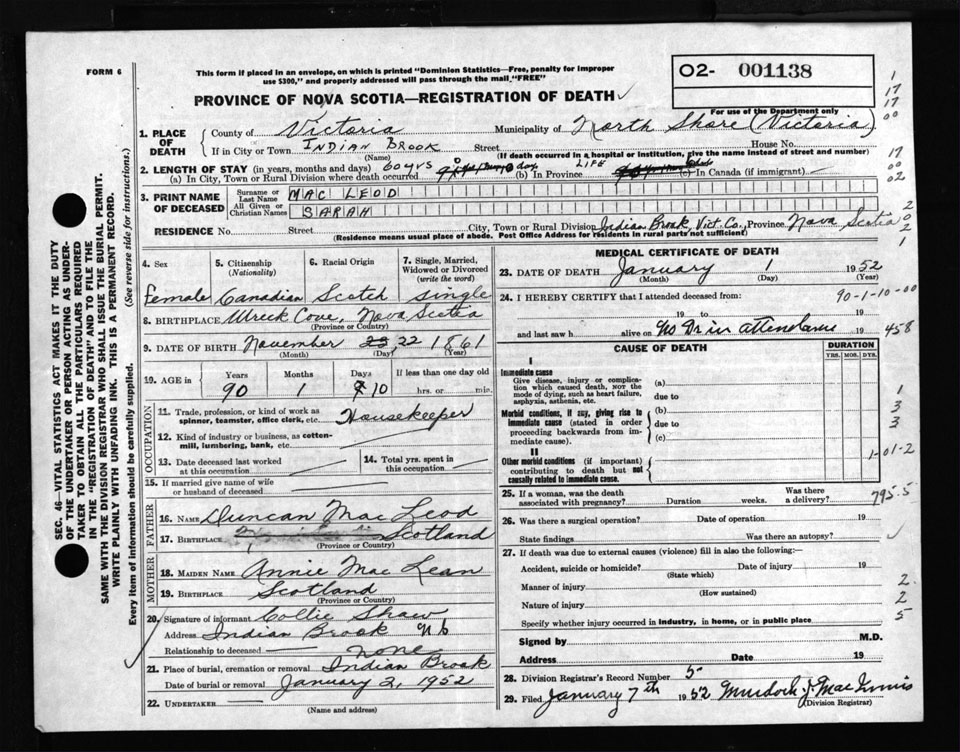 FORM 6
This form if placed in an envelope, on which is printed "Dominion Statistics—Free, penalty for improper
use $300," and properly addressed will pass through the mail "FREE"
O2- 001138
For use of the Department only
PROVINCE OF NOVA SCOTIA—REGISTRATION OF DEATH
1. PLACE OF DEATH
County of Victoria Municipality of North Shore (Victoria)
If in City or Town INDIAN BROOK Street House No.
(Name) (If death occurred in a hospital or institution, give the name instead of street and number)
2. LENGTH OF STAY (in years, months and days) 60 yrs 0 days LIFE
(a) In City, Town or Rural Division where death occurred (b) In Province (c) In Canada (if immigrant)
3. PRINT NAME OF DECEASED
Surname or Last Name MAC LEOD
All Given or Christian Names SARAH
RESIDENCE No. Street City, Town or Rural Division Indian Brook, Vict. Co., Province Nova Scotia
(Residence means usual place of abode. Post Office Address for residents in rural parts not sufficient)
4. Sex
Female
5. Citizenship (Nationality)
Canadian
6. Racial Origin
Scotch
7. Single, Married, Widowed or Divorced (write the word)
single
8. BIRTHPLACE Wreck Cove, Nova Scotia
(Province or Country)
9. DATE OF BIRTH November 22 1861
(Month) (Day) (Year)
10. AGE in Years Months Days If less than one day old
90 1 10 hrs. or min.
OCCUPATION
11. Trade, profession, or kind of work as spinner, teamster, office clerk, etc. Housekeeper
12. Kind of industry or business, as cotton-mill, lumbering, bank, etc.
13. Date deceased last worked at this occupation
14. Total yrs. spent in this occupation
15. If married give name of wife or husband of deceased
FATHER
16. NAME Duncan Mac Leod
17. BIRTHPLACE Scotland
(Province or Country)
MOTHER
18. MAIDEN NAME Annie Mac Lean
19. BIRTHPLACE Scotland
(Province or Country)
20. Signature of informant Collie Shaw
Address Indian Brook
Relationship to deceased none
21. Place of burial, cremation or removal Indian Brook
Date of burial or removal January 2, 1952
22. UNDERTAKER
(Name and address)
MEDICAL CERTIFICATE OF DEATH
23. DATE OF DEATH January 1 1952
(Month) (Day) (Year)
24. I HEREBY CERTIFY that I attended deceased from:
90-1-10-00
19 to 19
and last saw h alive on No Dr in attendance 19
458
CAUSE OF DEATH
DURATION
YRS. MOS. DYS.
I
Immediate cause
Give disease, injury or complication which caused death, NOT the mode of dying, such as heart failure, asphyxia, asthenia, etc.
(a)
due to
Morbid conditions, if any, giving rise to immediate cause (stated in order proceeding backwards from immediate cause).
(b)
due to
(c)
II
Other morbid conditions (if important) contributing to death but not causally related to immediate cause.
1-01-2
25. If a woman, was the death associated with pregnancy? Duration weeks. Was there a delivery?
795.5
26. Was there a surgical operation? Date of operation 19
State findings Was there an autopsy?
27. If death was due to external causes (violence) fill in also the following:—
Accident, suicide or homicide? Date of injury 19
(State which)
Manner of injury
(How sustained)
Nature of injury
Specify whether injury occurred in industry, in home, or in public place
Signed by M.D.
Address Date 19
28. Division Registrar's Record Number 5
29. Filed January 7th 1952 Murdock J. Mac Innis
(Division Registrar)
SEC. 46—VITAL STATISTICS ACT MAKES IT THE DUTY
OF THE UNDERTAKER OR PERSON ACTING AS UNDER-
TAKER TO OBTAIN ALL THE PARTICULARS REQUIRED
IN THE "REGISTRATION OF DEATH" AND TO FILE THE
SAME WITH THE DIVISION REGISTRAR WHO SHALL ISSUE THE BURIAL PERMIT.
WRITE PLAINLY WITH UNFADING INK. THIS IS A PERMANENT RECORD.
Every item of information should be carefully supplied. (See reverse side for instructions.)
1
17
17
00
17
00
02
2
0
2
1
1
3
3
2
2
5